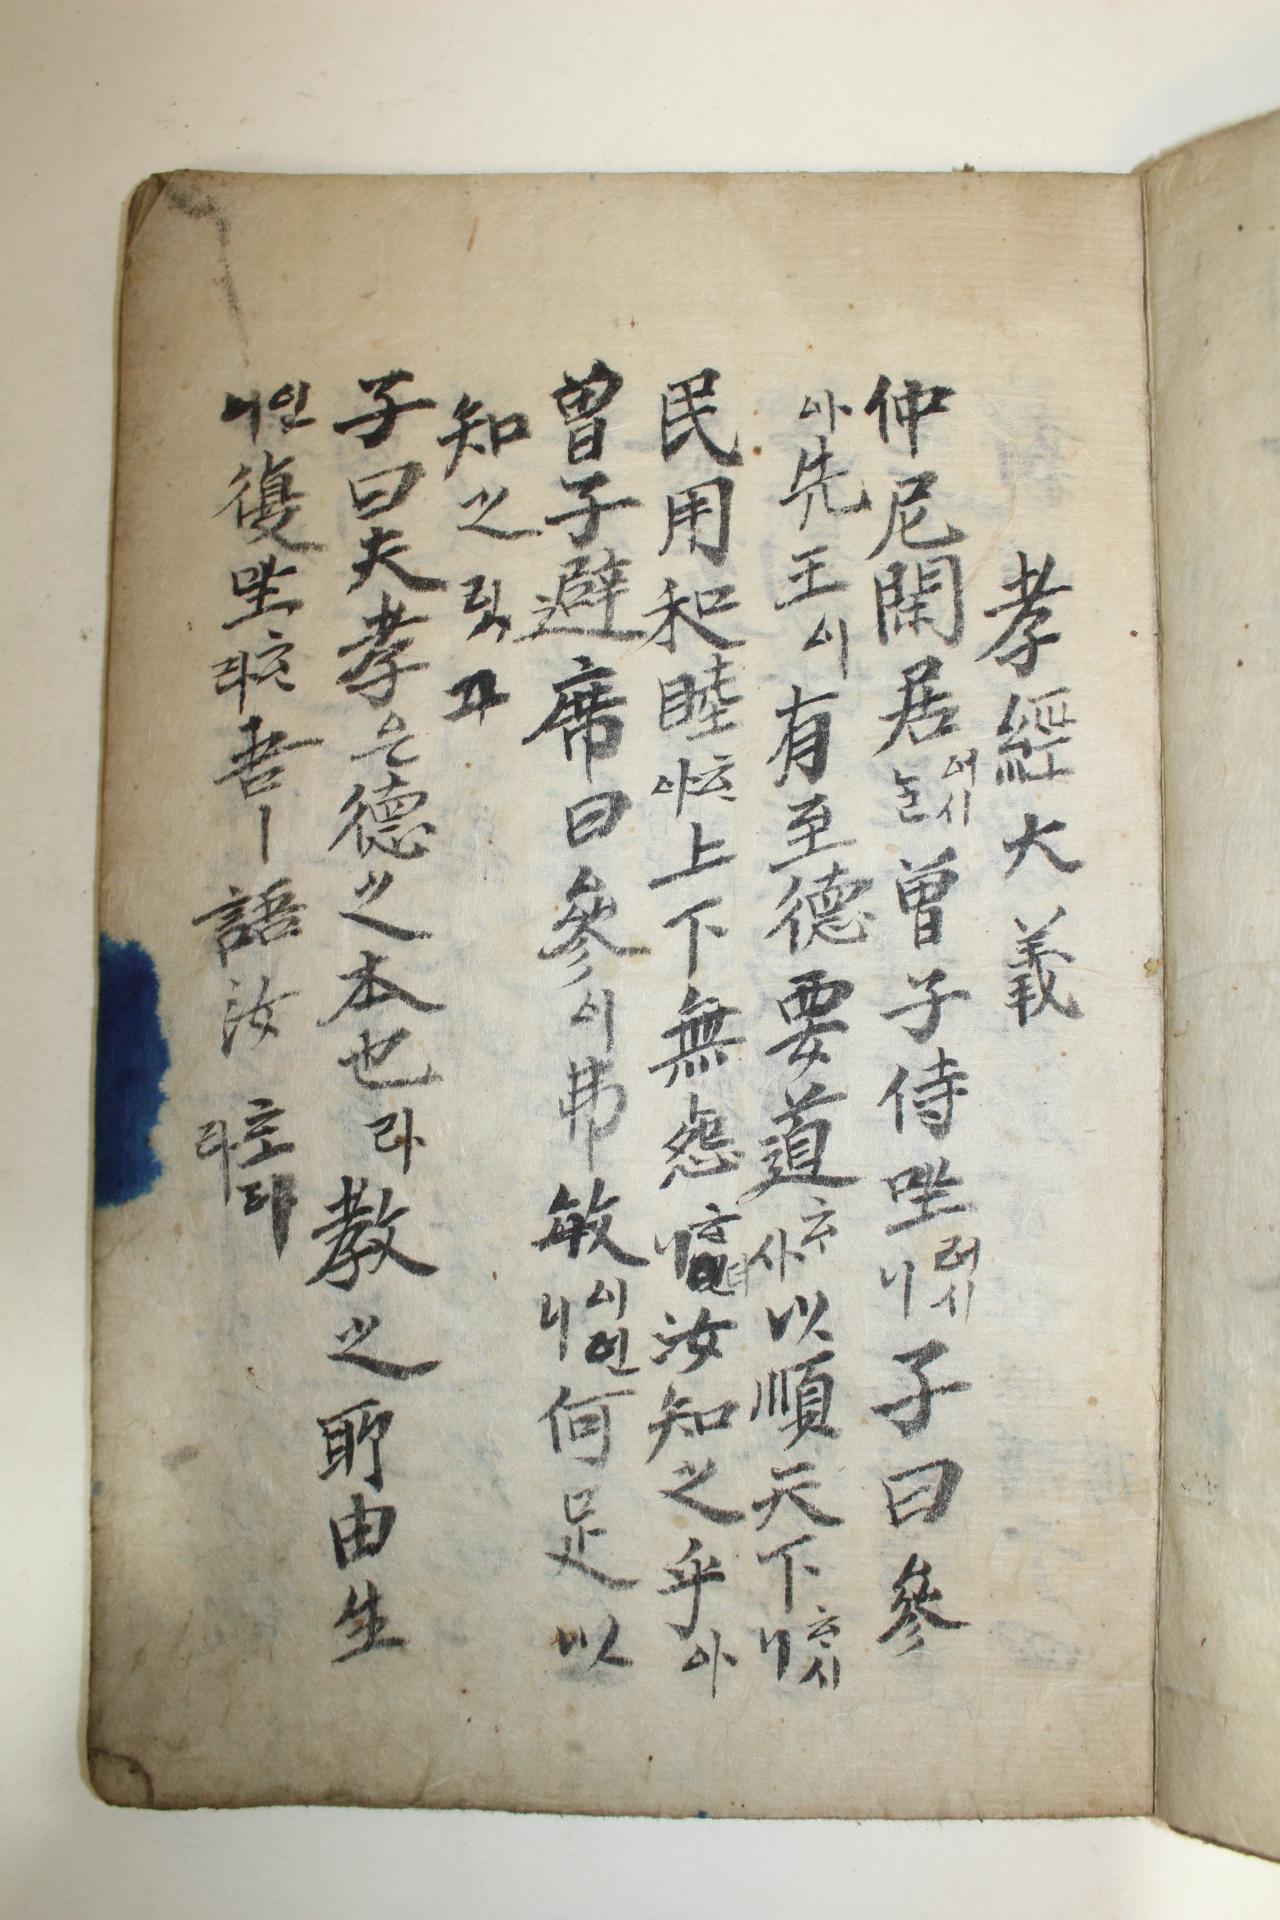 孝經大義
仲尼閒居어시늘曾子侍坐러시니子曰參
아先王이有至德要道ᄒᆞ샤以順天下ᄒᆞ시니
民用和睦ᄒᆞ야上下無怨ᄒᆞ니汝知之乎아
曾子避席曰參이弗敏이어시니何足以
知之리잇고
子曰夫孝ᄂᆞᆫ德之本也라敎之所由生
이니復坐ᄒᆞ라吾ㅣ語汝호리라